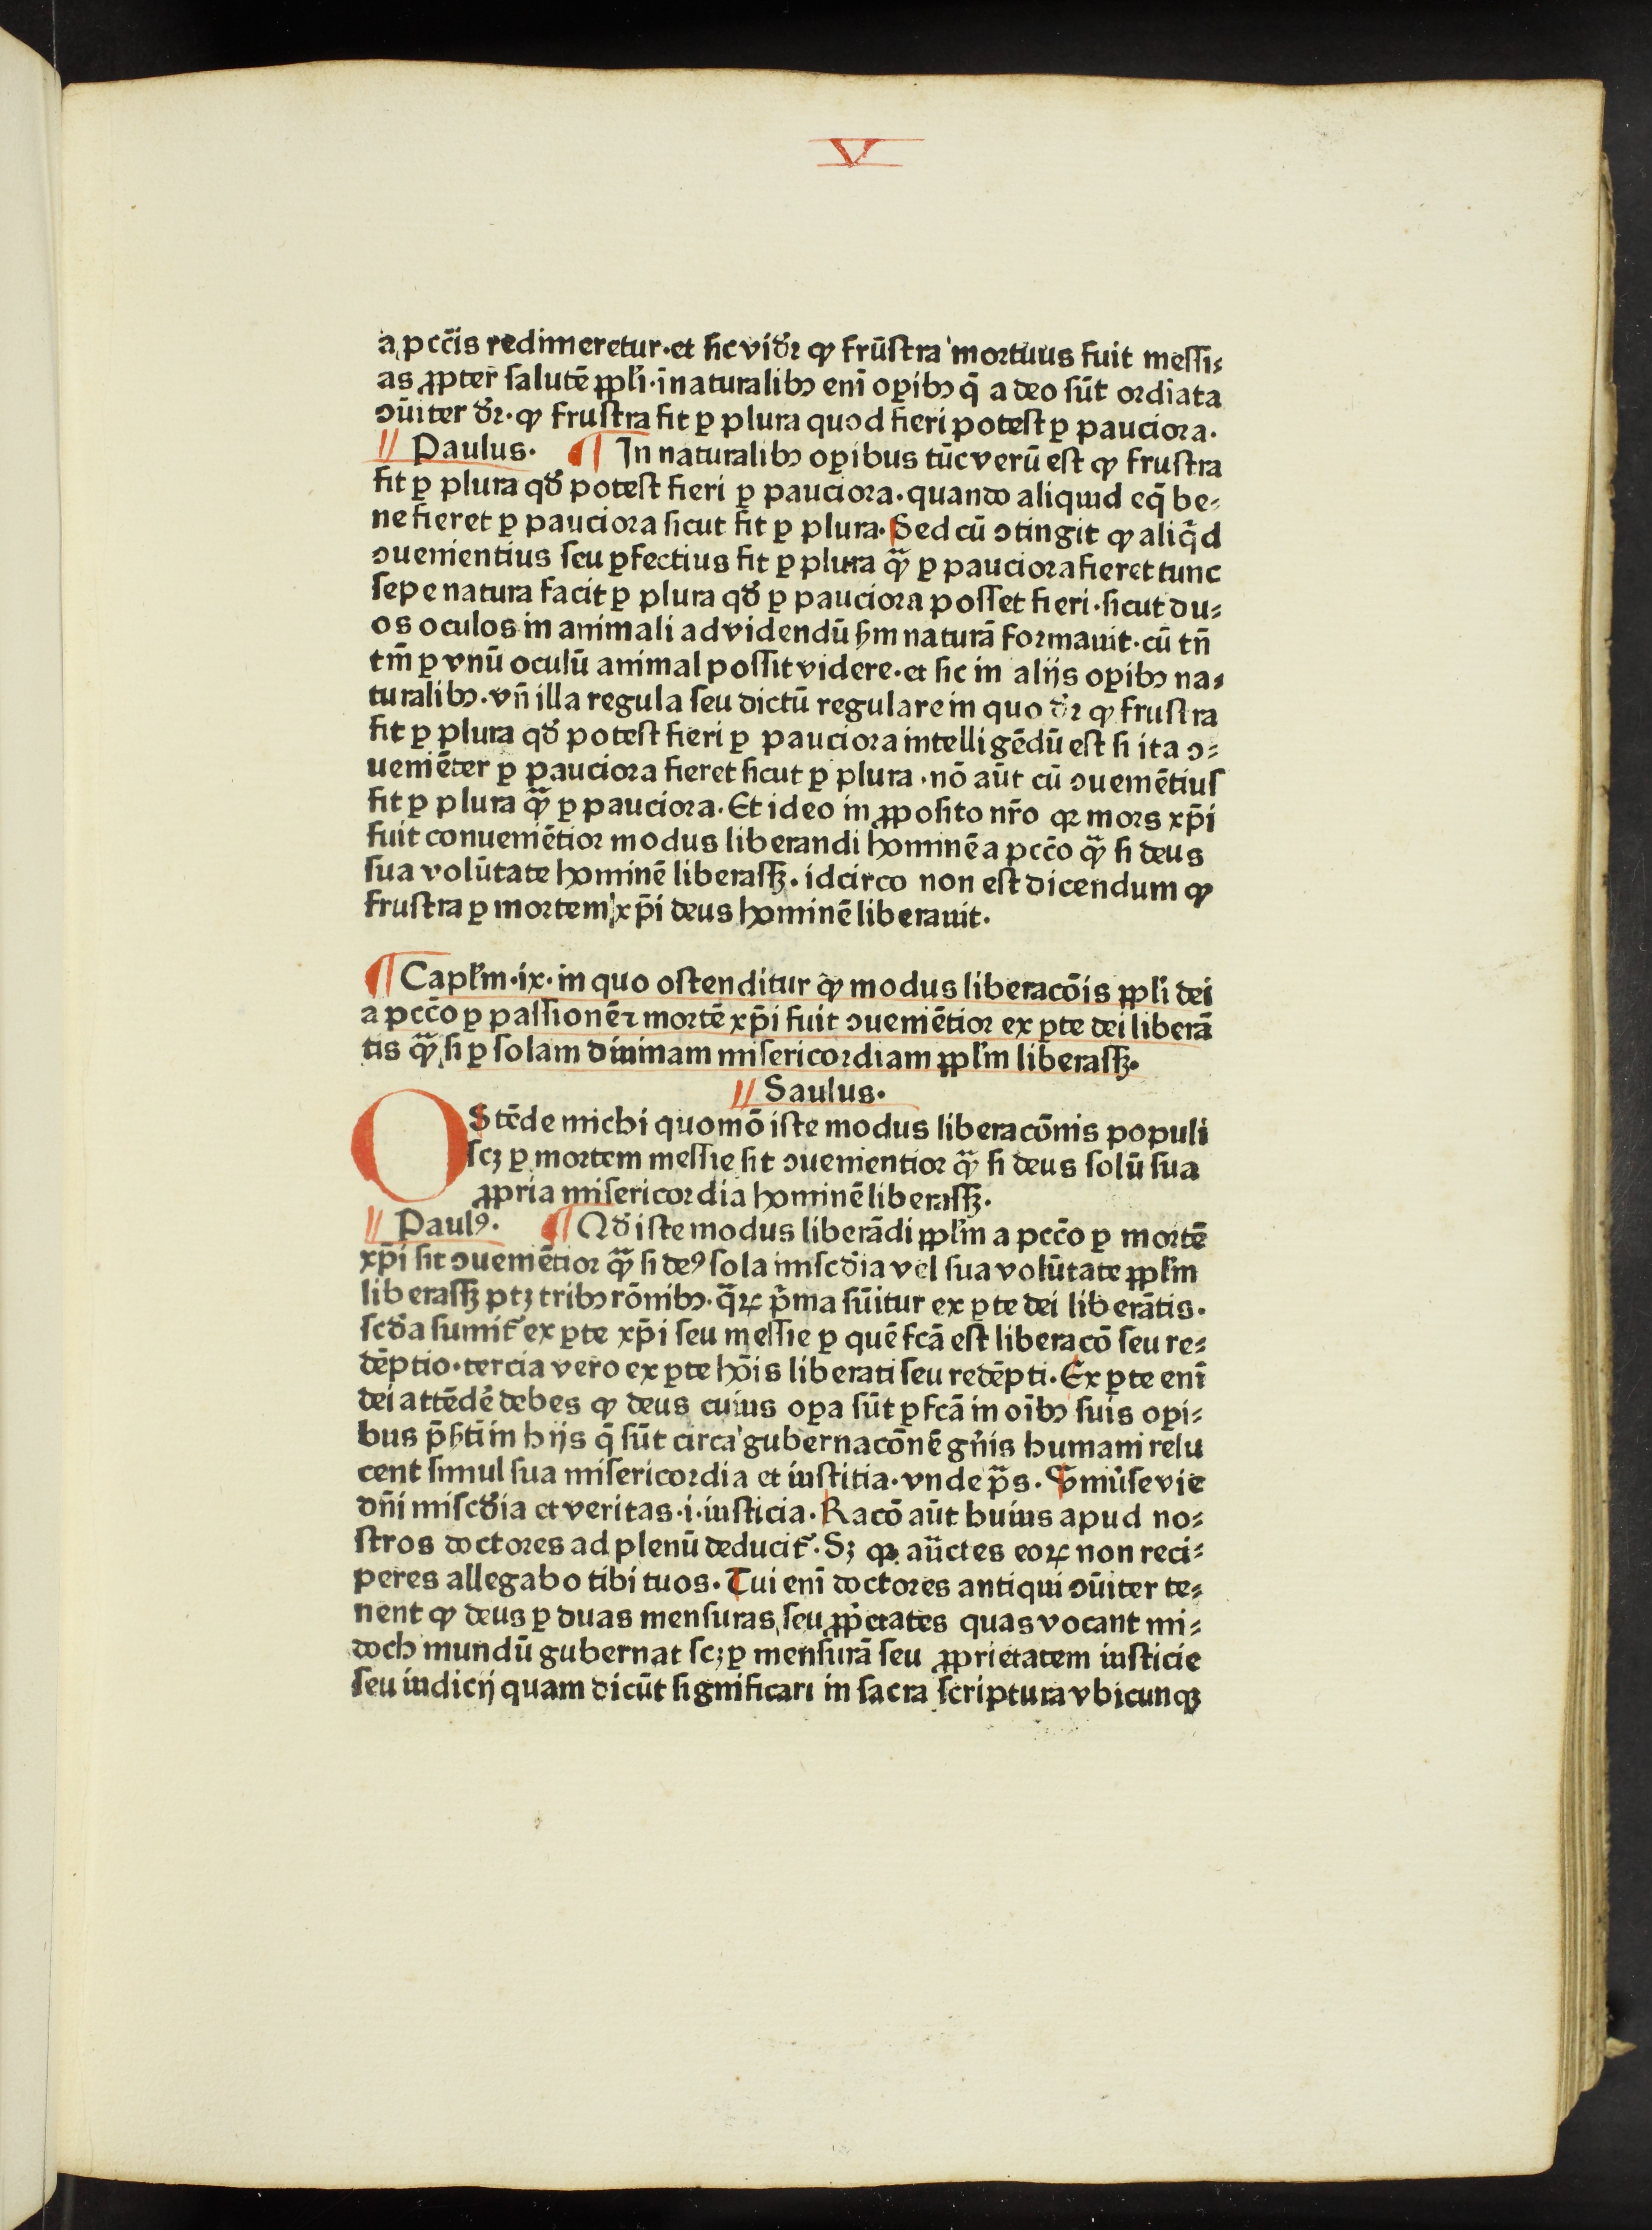 V
a pcc̄is redimeretur·et sic vid̄r ꝙ frūstra mortuus fuit messi⸗
as ꝓpter salutē ꝓpl̄i·īnaturalibꝫ enī oꝑibꝫ q̄ a deo sūt ordīata
ꝯūiter d̄r·ꝙ frustra fit ꝑ plura quod fieri potest ꝑ pauciora·
// Paulus· ¶ In naturalibꝫ oꝑibus tūc verū est ꝙ frustra
fit ꝑ plura qd̄ potest fieri ꝑ pauciora·quando aliquid eq̄ be⸗
ne fieret ꝑ pauciora sicut fit ꝑ plura·Sed cū ꝯtingit ꝙ aliq̄d
ꝯuenientius seu ꝑfectius fit ꝑ plura qꝫ̄ ꝑ pauciora fieret tunc
sepe natura facit ꝑ plura qd̄ ꝑ pauciora posset fieri·sicut du⸗
os oculos in animali ad videndū ẜm naturā formauit·cū tn̄
tm̄ ꝑ vnū oculū animal possit videre·et sic in alijs oꝑibꝫ na⸗
turalibꝫ·vn̄ illa regula seu dictū regulare in quo d̄r ꝙ frustra
fit ꝑ plura qd̄ potest fieri ꝑ pauciora intelligēdū est si ita ꝯ⸗
ueniēter ꝑ pauciora fieret sicut ꝑ plura·nō aūt cū ꝯueniētius
fit ꝑ plura qꝫ̄ ꝑ pauciora·Et ideo in ꝓposito nr̄o qꝛ mors xp̄i
fuit conueniētior modus liberandi hominē a pcc̄o qꝫ̄ si deus
sua volūtate hominē liberassꝫ·idcirco non est dicendum ꝙ
frustra ꝑ mortem xp̄i deus hominē liberauit·
¶ Capl̄m·ix·in quo ostenditur ꝙ modus liberacōis ꝓpl̄i dei
a pcc̄o ꝑ passionē ⁊ mortē xp̄i fuit ꝯueniētior ex ꝑte dei liberā
tis qꝫ̄ si ꝑ solam diuinam misericordiam ꝓpl̄m liberassꝫ·
// Saulus·
OStēde michi quomō iste modus liberacōnis populi
scꝫ ꝑ mortem messie sit ꝯuenientior qꝫ̄ si deus solū sua
ꝓpria misericordia hominē liberassꝫ·
// Paulꝰ· ¶ Qd̄ iste modus liberādi ꝓpl̄m a pcc̄o ꝑ mortē
xp̄i sit ꝯueniētior qꝫ̄ si deꝰ sola miscd̄ia vel sua volūtate ꝓpl̄m
liberassꝫ ptꝫ tribꝫ rōnibꝫ·q̄ꝝ p̄ma sūitur ex ꝑte dei liberātis·
scd̄a sumit᷑ ex ꝑte xp̄i seu messie ꝑ quē fcā est liberacō seu re⸗
dēptio·tercia vero ex ꝑte hōis liberati seu redēpti·Ex ꝑte enī
dei attēdē debes ꝙ deus cuius oꝑa sūt ꝑfcā in oībꝫ suis oꝑi⸗
bus p̄ẜtī in hijs q̄ sūt circa gubernacōnē gn̄is humani relu
cent simul sua misericordia et iustitia·vnde p̄s· Vniūse vie
dn̄i miscd̄ia et veritas·i·iusticia·Racō aūt huius apud no⸗
stros doctores ad plenū deducit᷑·Sꝫ qꝛ aūctes eoꝝ non reci⸗
peres allegabo tibi tuos·Tui enī doctores antiqui ꝯūiter te⸗
nent ꝙ deus ꝑ duas mensuras seu ꝓp̄etates quas vocant mi⸗
doch mundū gubernat scꝫ ꝑ mensurā seu ꝓprietatem iusticie
seu iudicij quam dicūt significari in sacra scriptura vbicunqꝫ